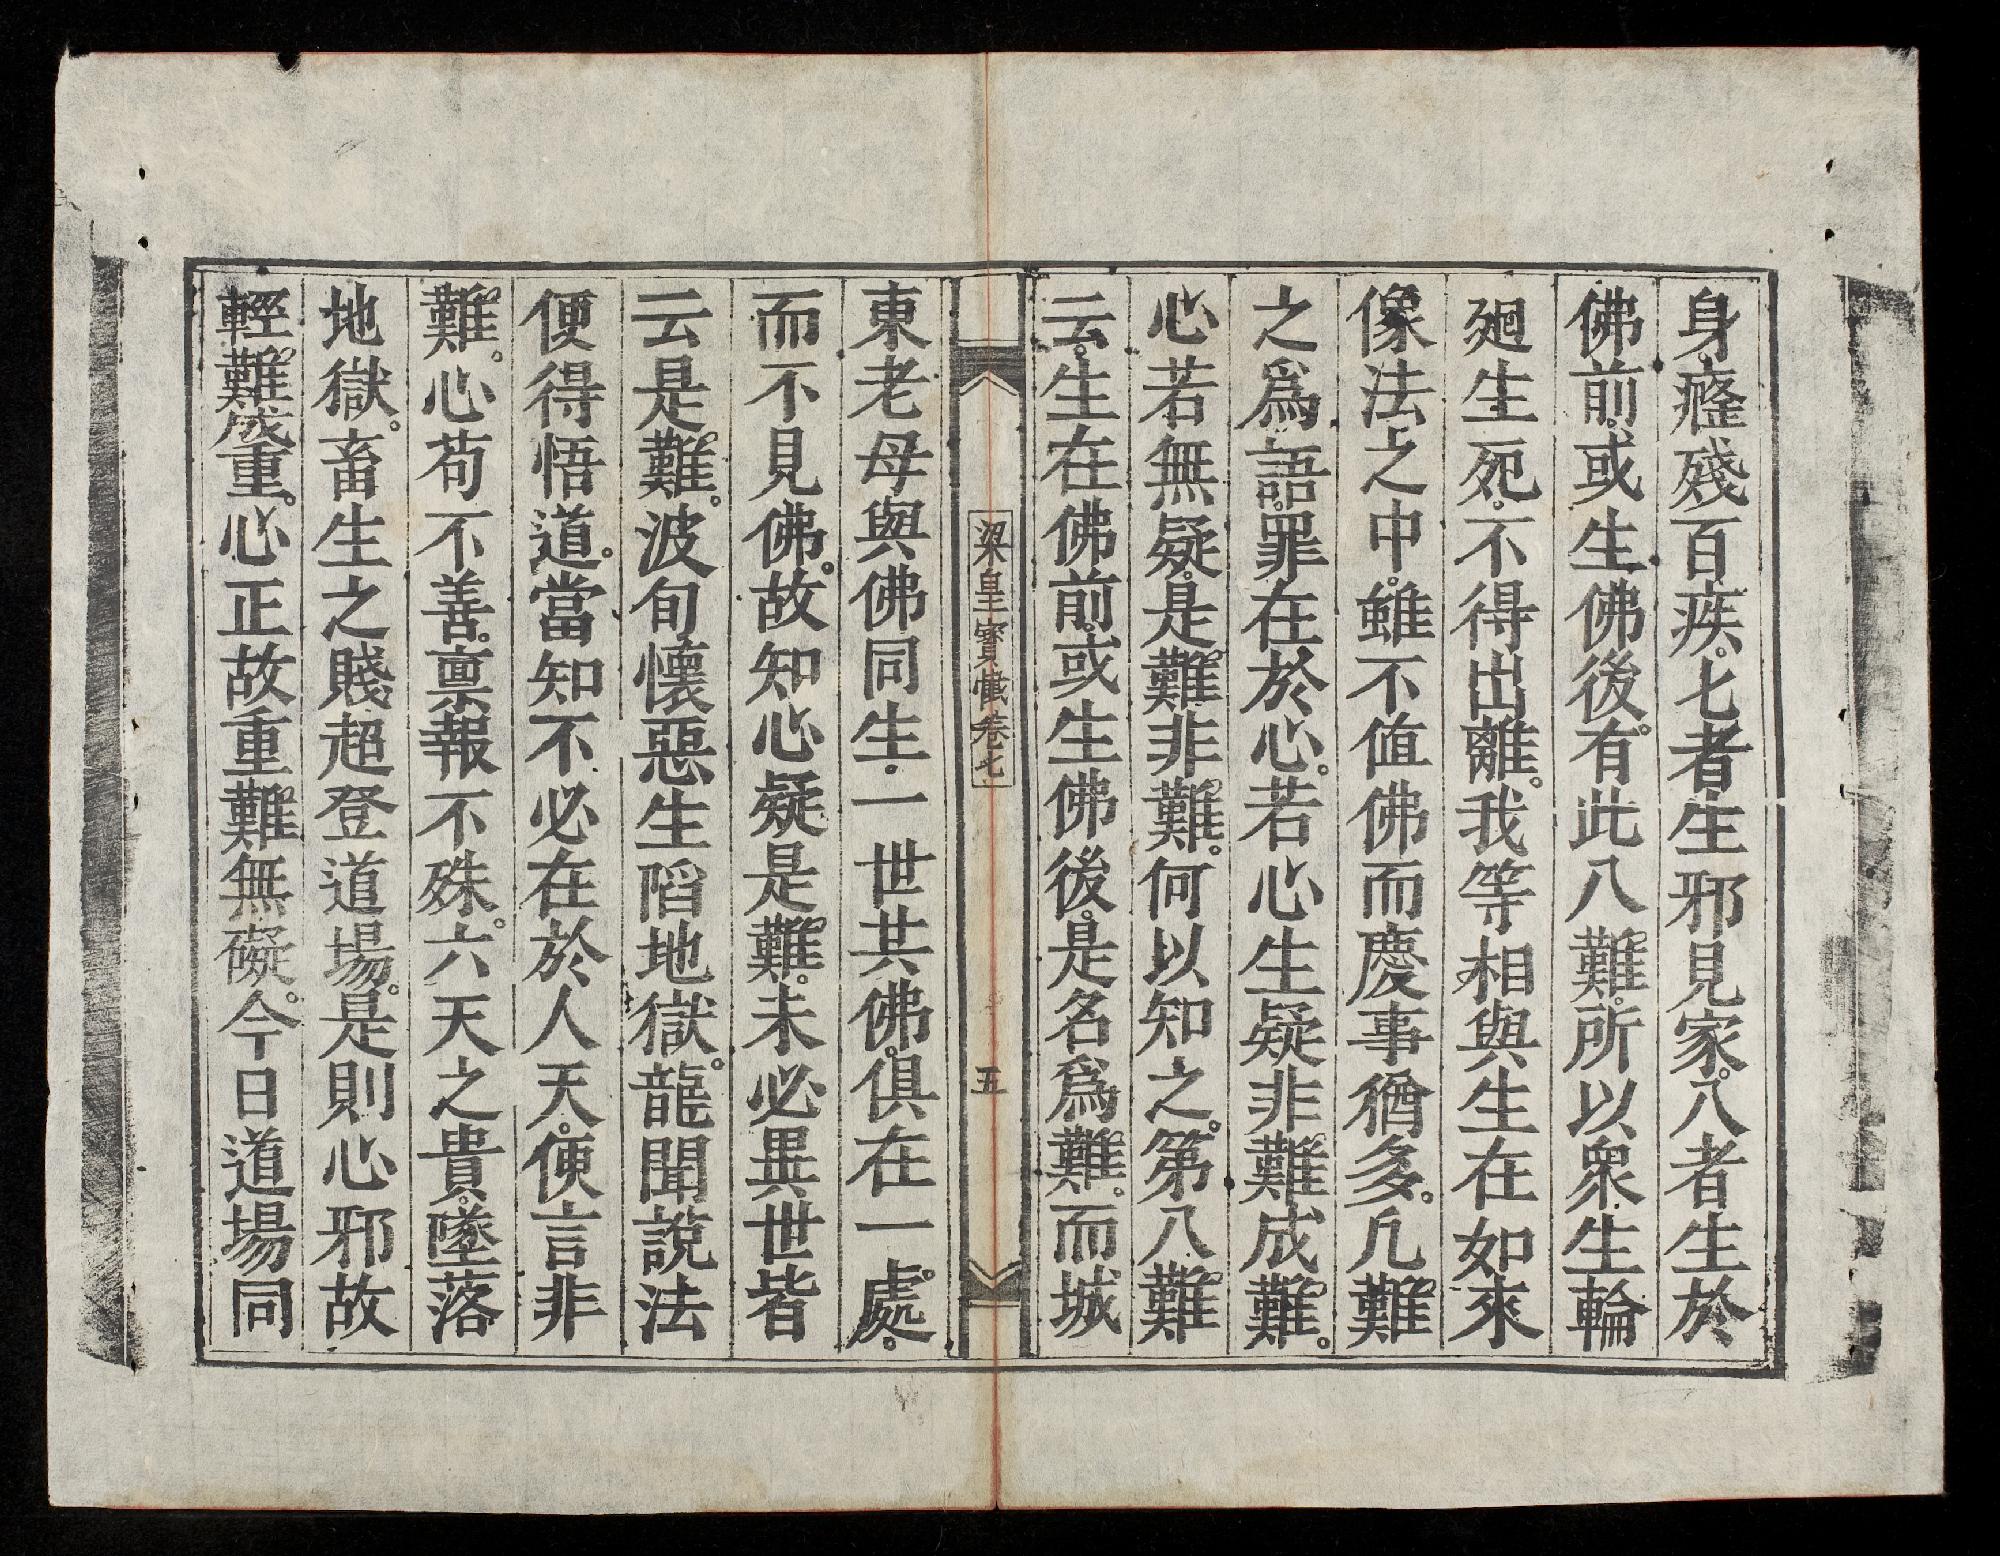 身。癃殘百疾。七者生邪見家。八者生於
佛前。或生佛後。有此八難。所以衆生輪
廻生死。不得出離。我等相與生在如來
像法之中。雖不值佛而慶事猶多。凡難
之爲語。罪在於心。若心生疑非難成難。
心若無疑。是難非難。何以知之。第八難
云。生在佛前。或生佛後。是名爲難。而城
梁皇寶懺卷七 五
東老母與佛同生。一世共佛。俱在一處。
而不見佛。故知心疑是難。未必異世皆
云是難。波旬懷惡生陷地獄。龍聞說法
便得悟道。當知不必在於人天。便言非
難。心苟不善。禀報不殊。六天之貴。墜落
地獄。畜生之賤超登道場。是則心邪故
輕難成重。心正故重難無礙。今日道場同